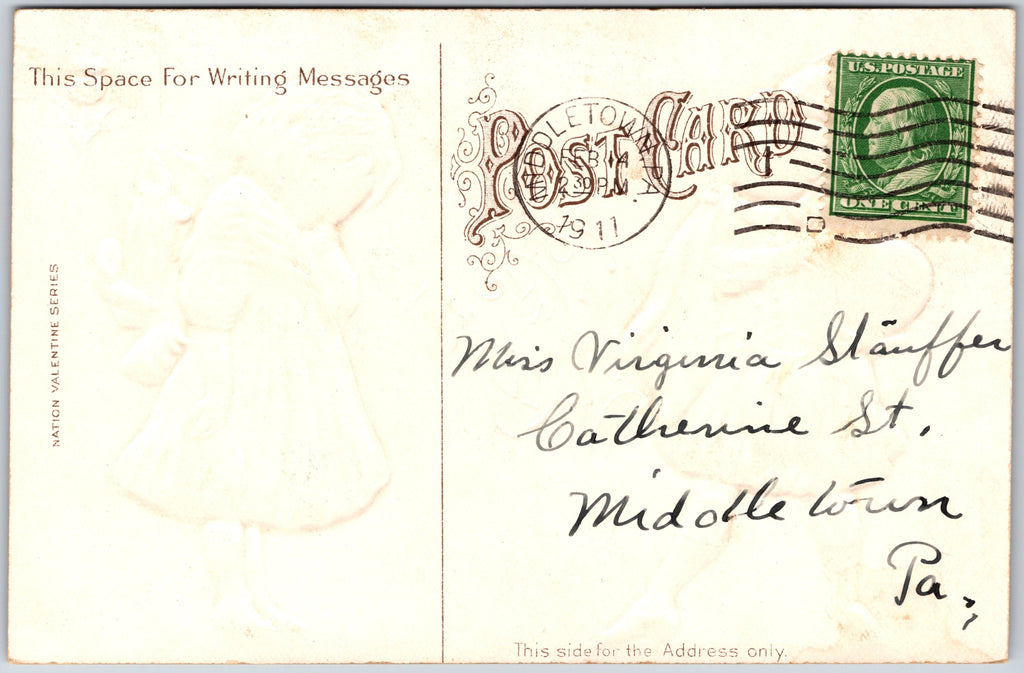 This Space For Writing Messages
NATION VALENTINE SERIES
POST CARD
MIDDLETOWN
FEB 14
230 PM
1911
U.S. POSTAGE
ONE CENT
D
Miss Virginia Stauffer
Catherine St.
Middletown
Pa.,
This side for the Address only.